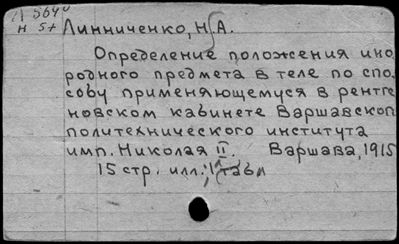 Линниченко, Н.А.
Определение положения ино
родного предмета в теле по спо
собу применяющемуся в рентге
новском кабинете Варшавского
политехнического института
имп. Николая II. Варшава, 1915
15 стр. илл.; 1 табл